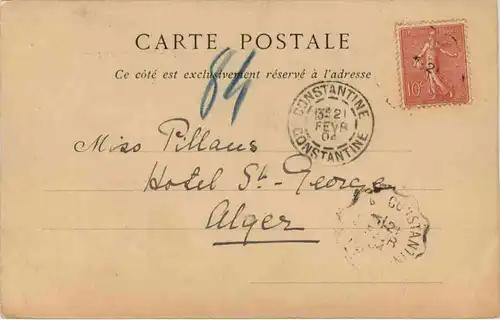 CARTE POSTALE
Ce côté est exclusivement réservé à l'adresse
84
10c
CONSTANTINE
13E 21
FEVR
04
CONSTANTINE
Miss Pillans
Hotel St. George
Alger
CONSTANTIN